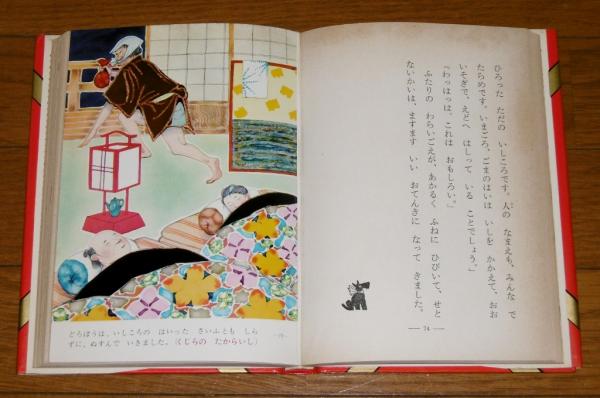 ひろった　ただの　いしころです。人の　なまえも、みんな　で
たらめです。いまごろ、ごまのはいは　いしを　かかえて、おお
いそぎで、えどへ　はしって　いる　ことでしょう。」
「わっはっは。これは　おもしろい。」
ふたりの　わらいごえが、あかるく　ふねに　ひびいて、せと
ないかいは、ますます　いい　おてんきに　なって　きました。
— 74 —
どろぼうは、いしころの　はいった　さいふとも　しら
ずに、ぬすんで　いきました。（くじらの　たからいし）